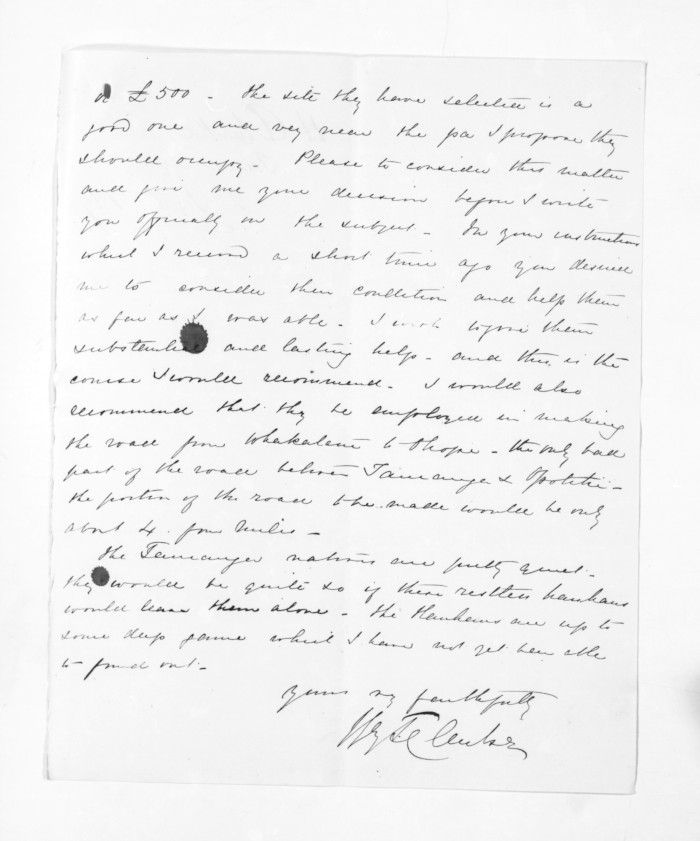 of £500 - The site they have selected is a
good one and very near the pa I propose they
should occupy - Please to consider this matter
and give me your decision before I write
you officially on the subject - In your instructions
which I received a short time ago you desired
me to consider their condition and help them
as far as I was able - I wish to give them
substantial and lasting help - and this is the
course I would recommend - I would also
recommend that they be employed in making
the road from Whakatane to Ohope - the only bad
part of the road between Tauranga & Opotiki -
the portion of the road to be made would be only
about 4 four miles -
The Tauranga natives are pretty quiet -
they would be quite so if these restless hauhaus
would leave them alone - The Hauhaus are up to
some deep game which I have not yet been able
to find out -
Yours very faithfully
H T Clarke